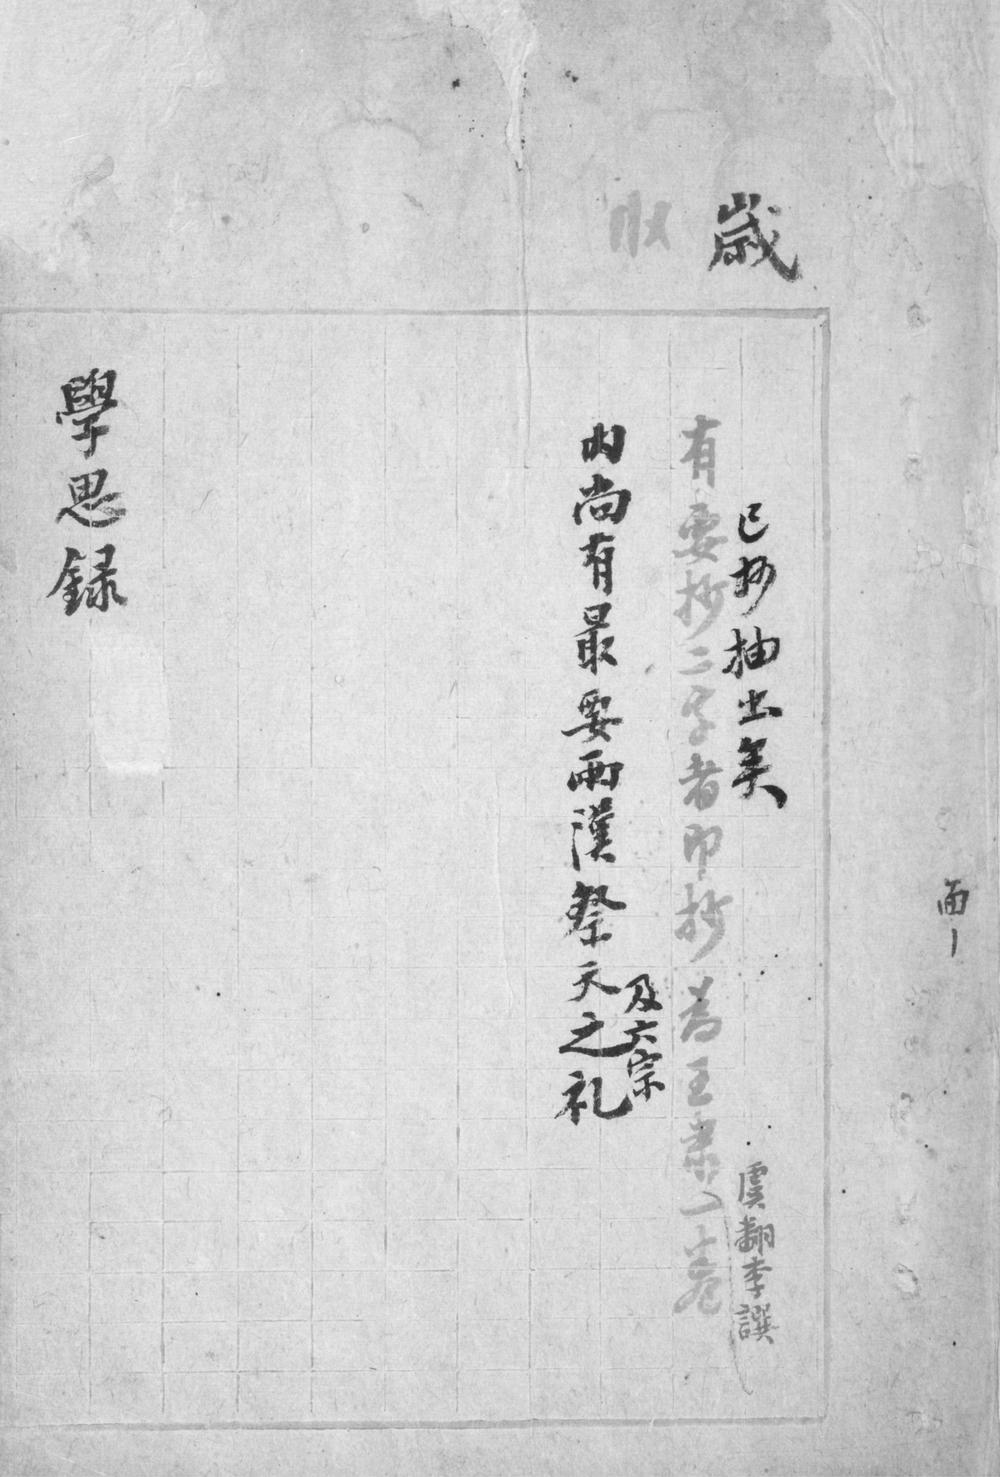 歲
收
已抄抽出矣
虞翻李譔
有要抄二字者即抄為王肅一小卷
及六宗
内尚有最要兩漢祭天之礼
學思録